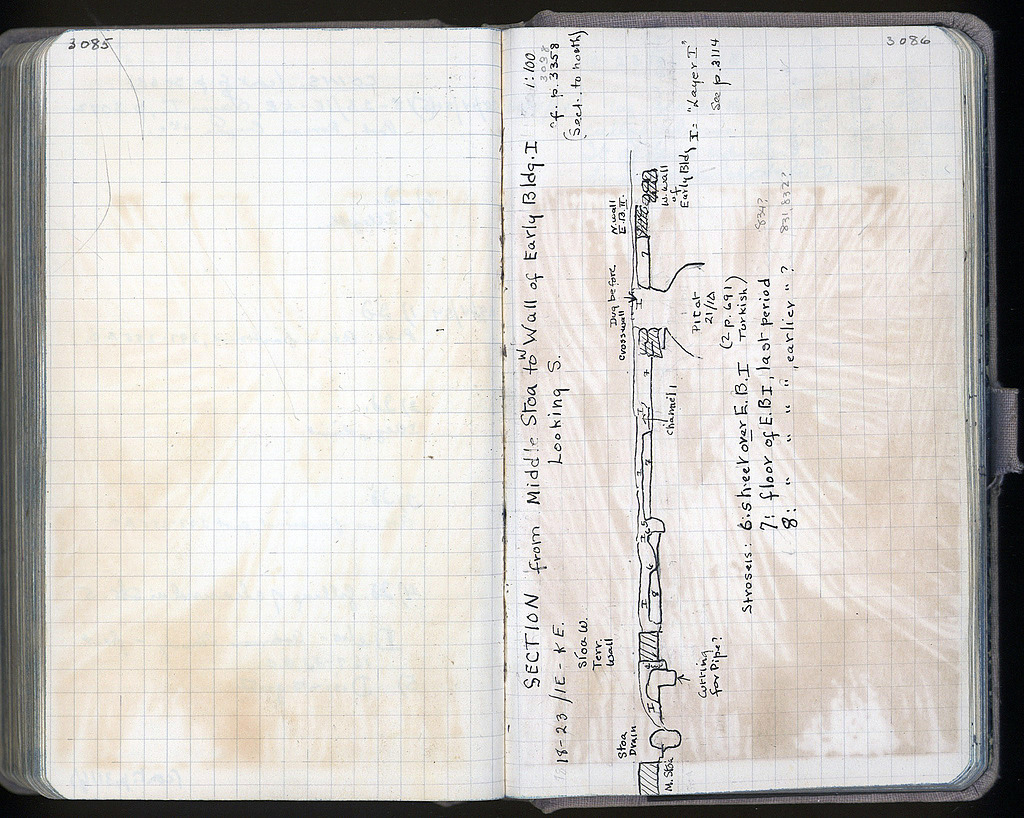 3085
3086
SECTION from Middle Stoa to W Wall of Early Bldg. I 1:100
Looking S.
3098
cf. p. 3358
(Sect. to north)
18-23/IE-KE.
Stoa W.
Terr.
Wall
Stoa
Drain
M. Stoa
Cutting
for Pipe?
Channel 1
Dug before
crosswall
Pit at
21/ΙΔ
(2 p. 691)
Turkish)
N. wall
E.B. II
W. wall
of
Early Bldg
I = "Layer I"
see p. 3114
I
4
I
8
6
I
6
5
I
7
I
7
I
7
Strosels: 6: sheet over E.B. I
7: floor of E.B I, last period
8: " " " ", earlier " ?
834?
831, 832?